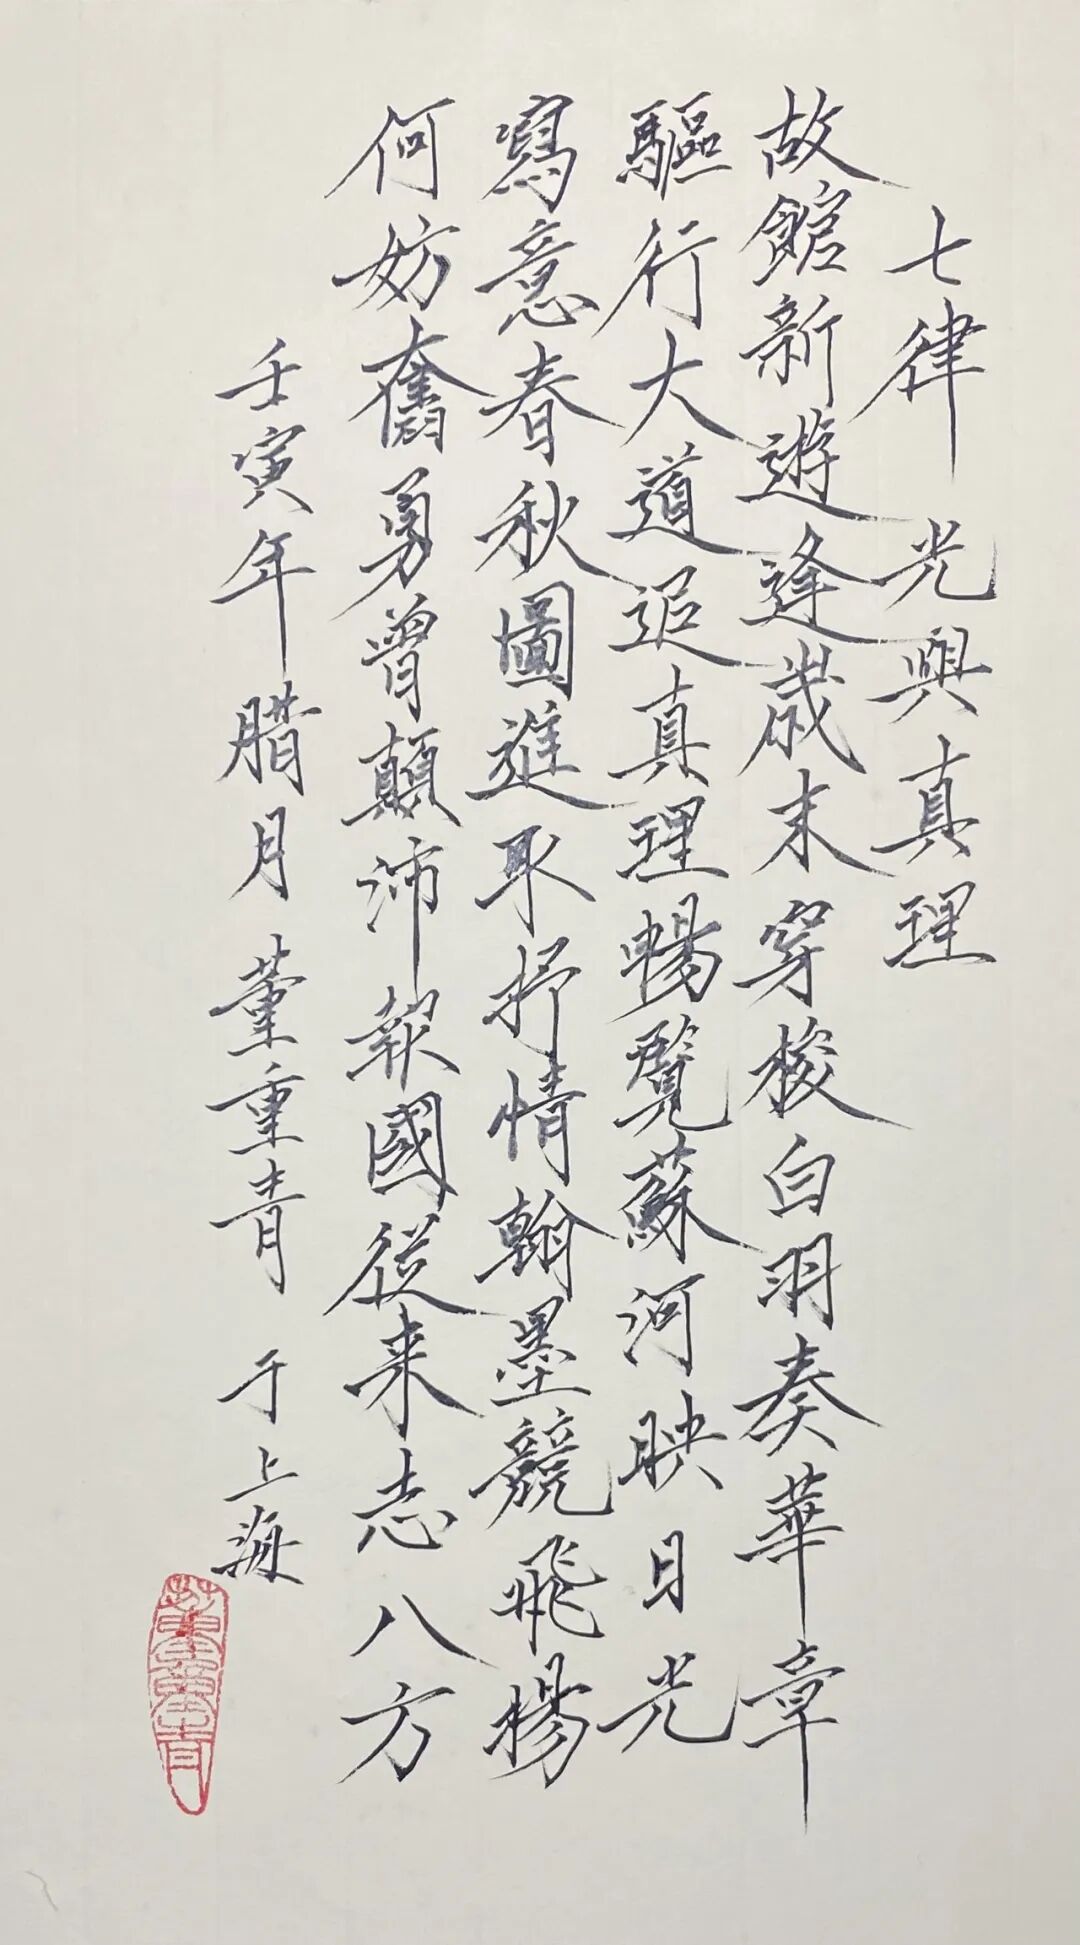 七律 光與真理
故館新遊逢歲末穿梭白羽奏華章
驅行大道追真理暢覽蘇河映日光
寫意春秋圖進取抒情翰墨競飛揚
何妨奮勇曾顛沛報國從来志八方
壬寅年腊月董重青 于上海
董重青